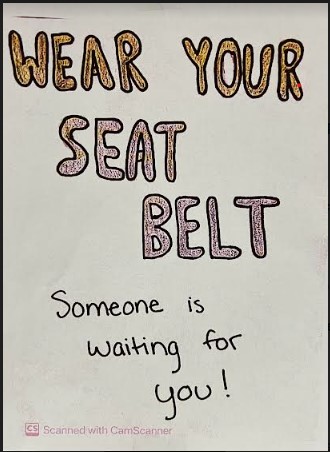 WEAR YOUR
SEAT
BELT
Someone is
waiting for
you!
CS Scanned with CamScanner